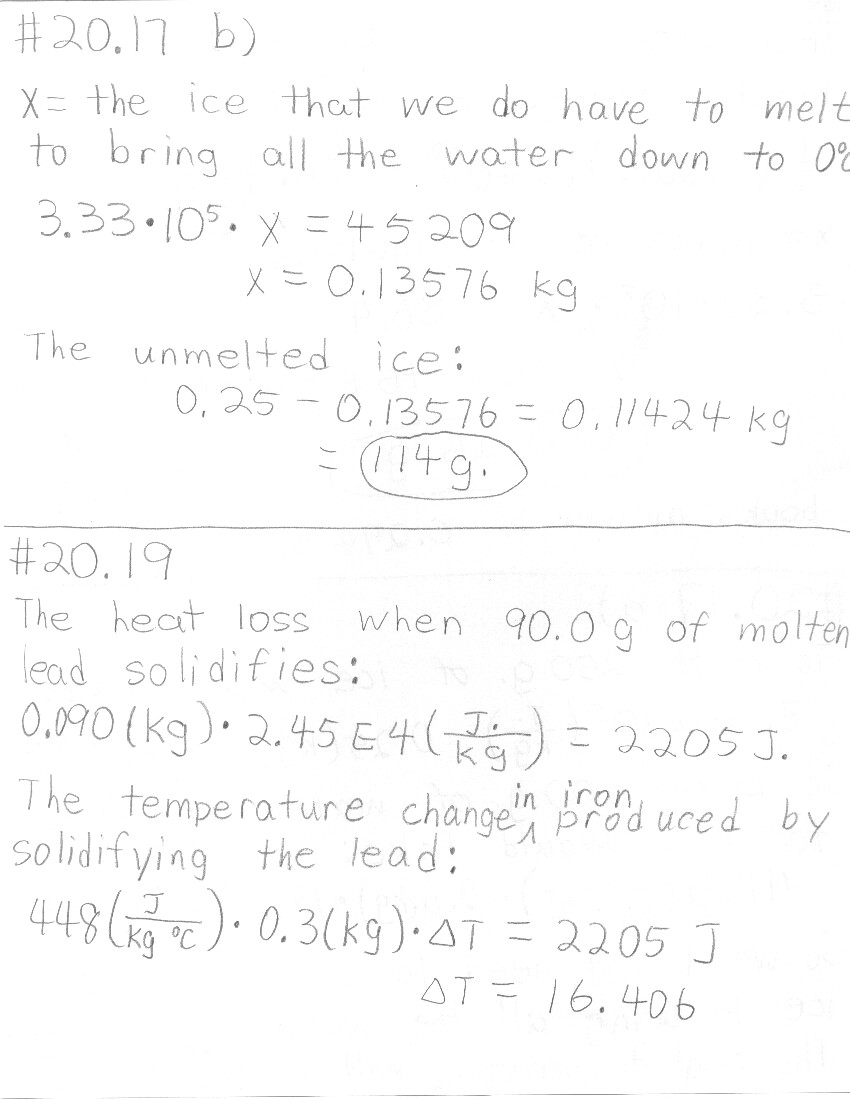 #20.17 b)
X = the ice that we do have to melt
to bring all the water down to 0°C
3.33·10⁵· X = 45209
X = 0.13576 kg
The unmelted ice:
0.25 - 0.13576 = 0.11424 kg
= 114g.
#20.19
The heat loss when 90.0 g of molten
lead solidifies:
0.090(kg)· 2.45E4(J./kg) = 2205J.
The temperature change in iron produced by
solidifying the lead:
448(J/kg °C)· 0.3(kg)·ΔT = 2205 J
ΔT = 16.406